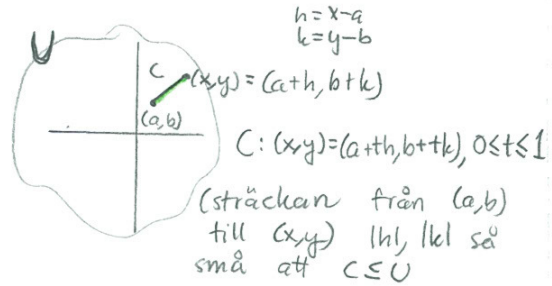 h=x-a
k=y-b
U
C
(x,y)=(a+h,b+k)
(a,b)
C:(x,y)=(a+th,b+tk),0≤t≤1
(sträckan från (a,b)
till (x,y) |h|, |k| så
små att C⊆U